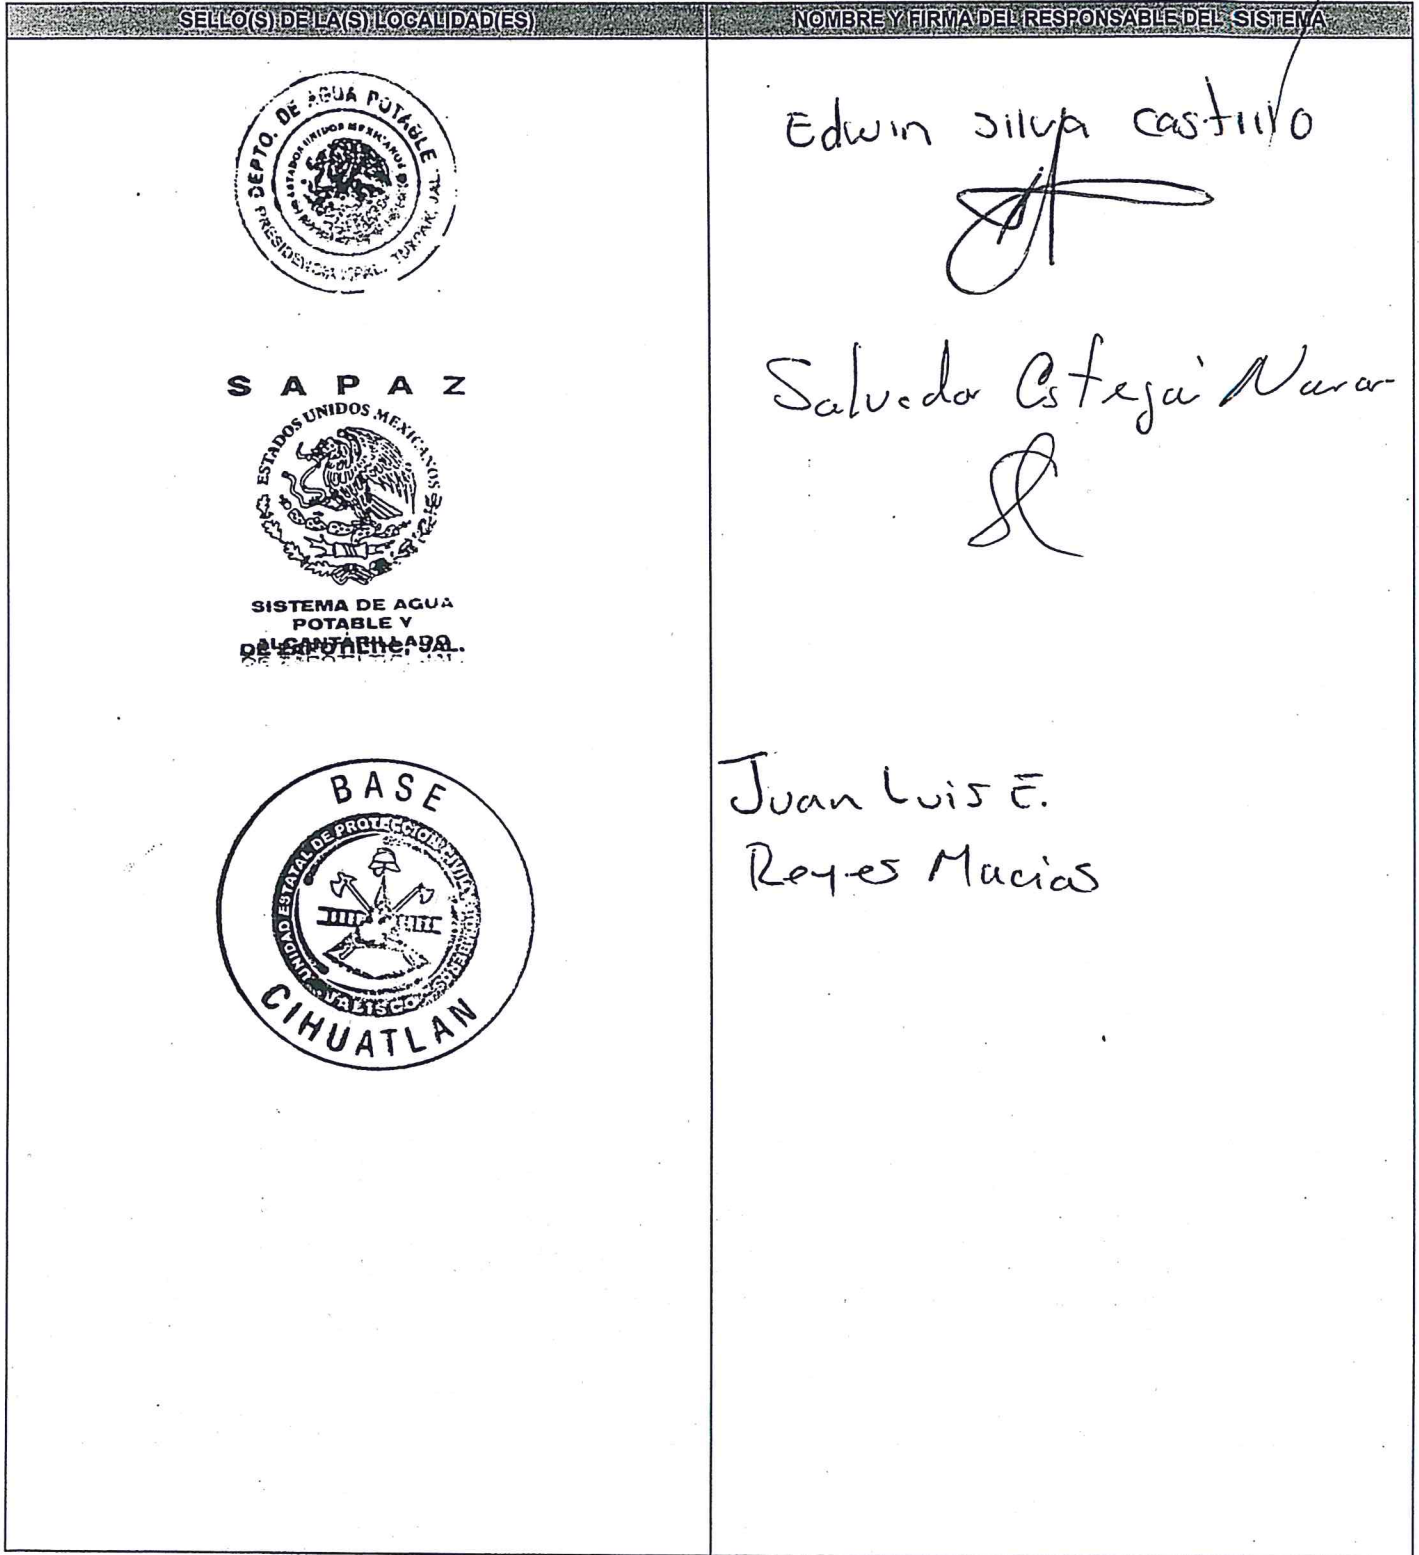 SELLO(S) DE LA(S) LOCALIDAD(ES)
NOMBRE Y FIRMA DEL RESPONSABLE DEL SISTEMA
DEPTO. DE AGUA POTABLE
ESTADOS UNIDOS MEXICANOS
TUXPAN, JAL.
Edwin Silva Castillo
S A P A Z
ESTADOS UNIDOS MEXICANOS
SISTEMA DE AGUA
POTABLE Y
ALCANTARILLADO
DE ZAPOTILTIC, JAL.
Salvador
BASE
UNIDAD ESTATAL DE PROTECCION CIVIL
JALISCO
CIHUATLAN
Juan Luis E.
Reyes Macias